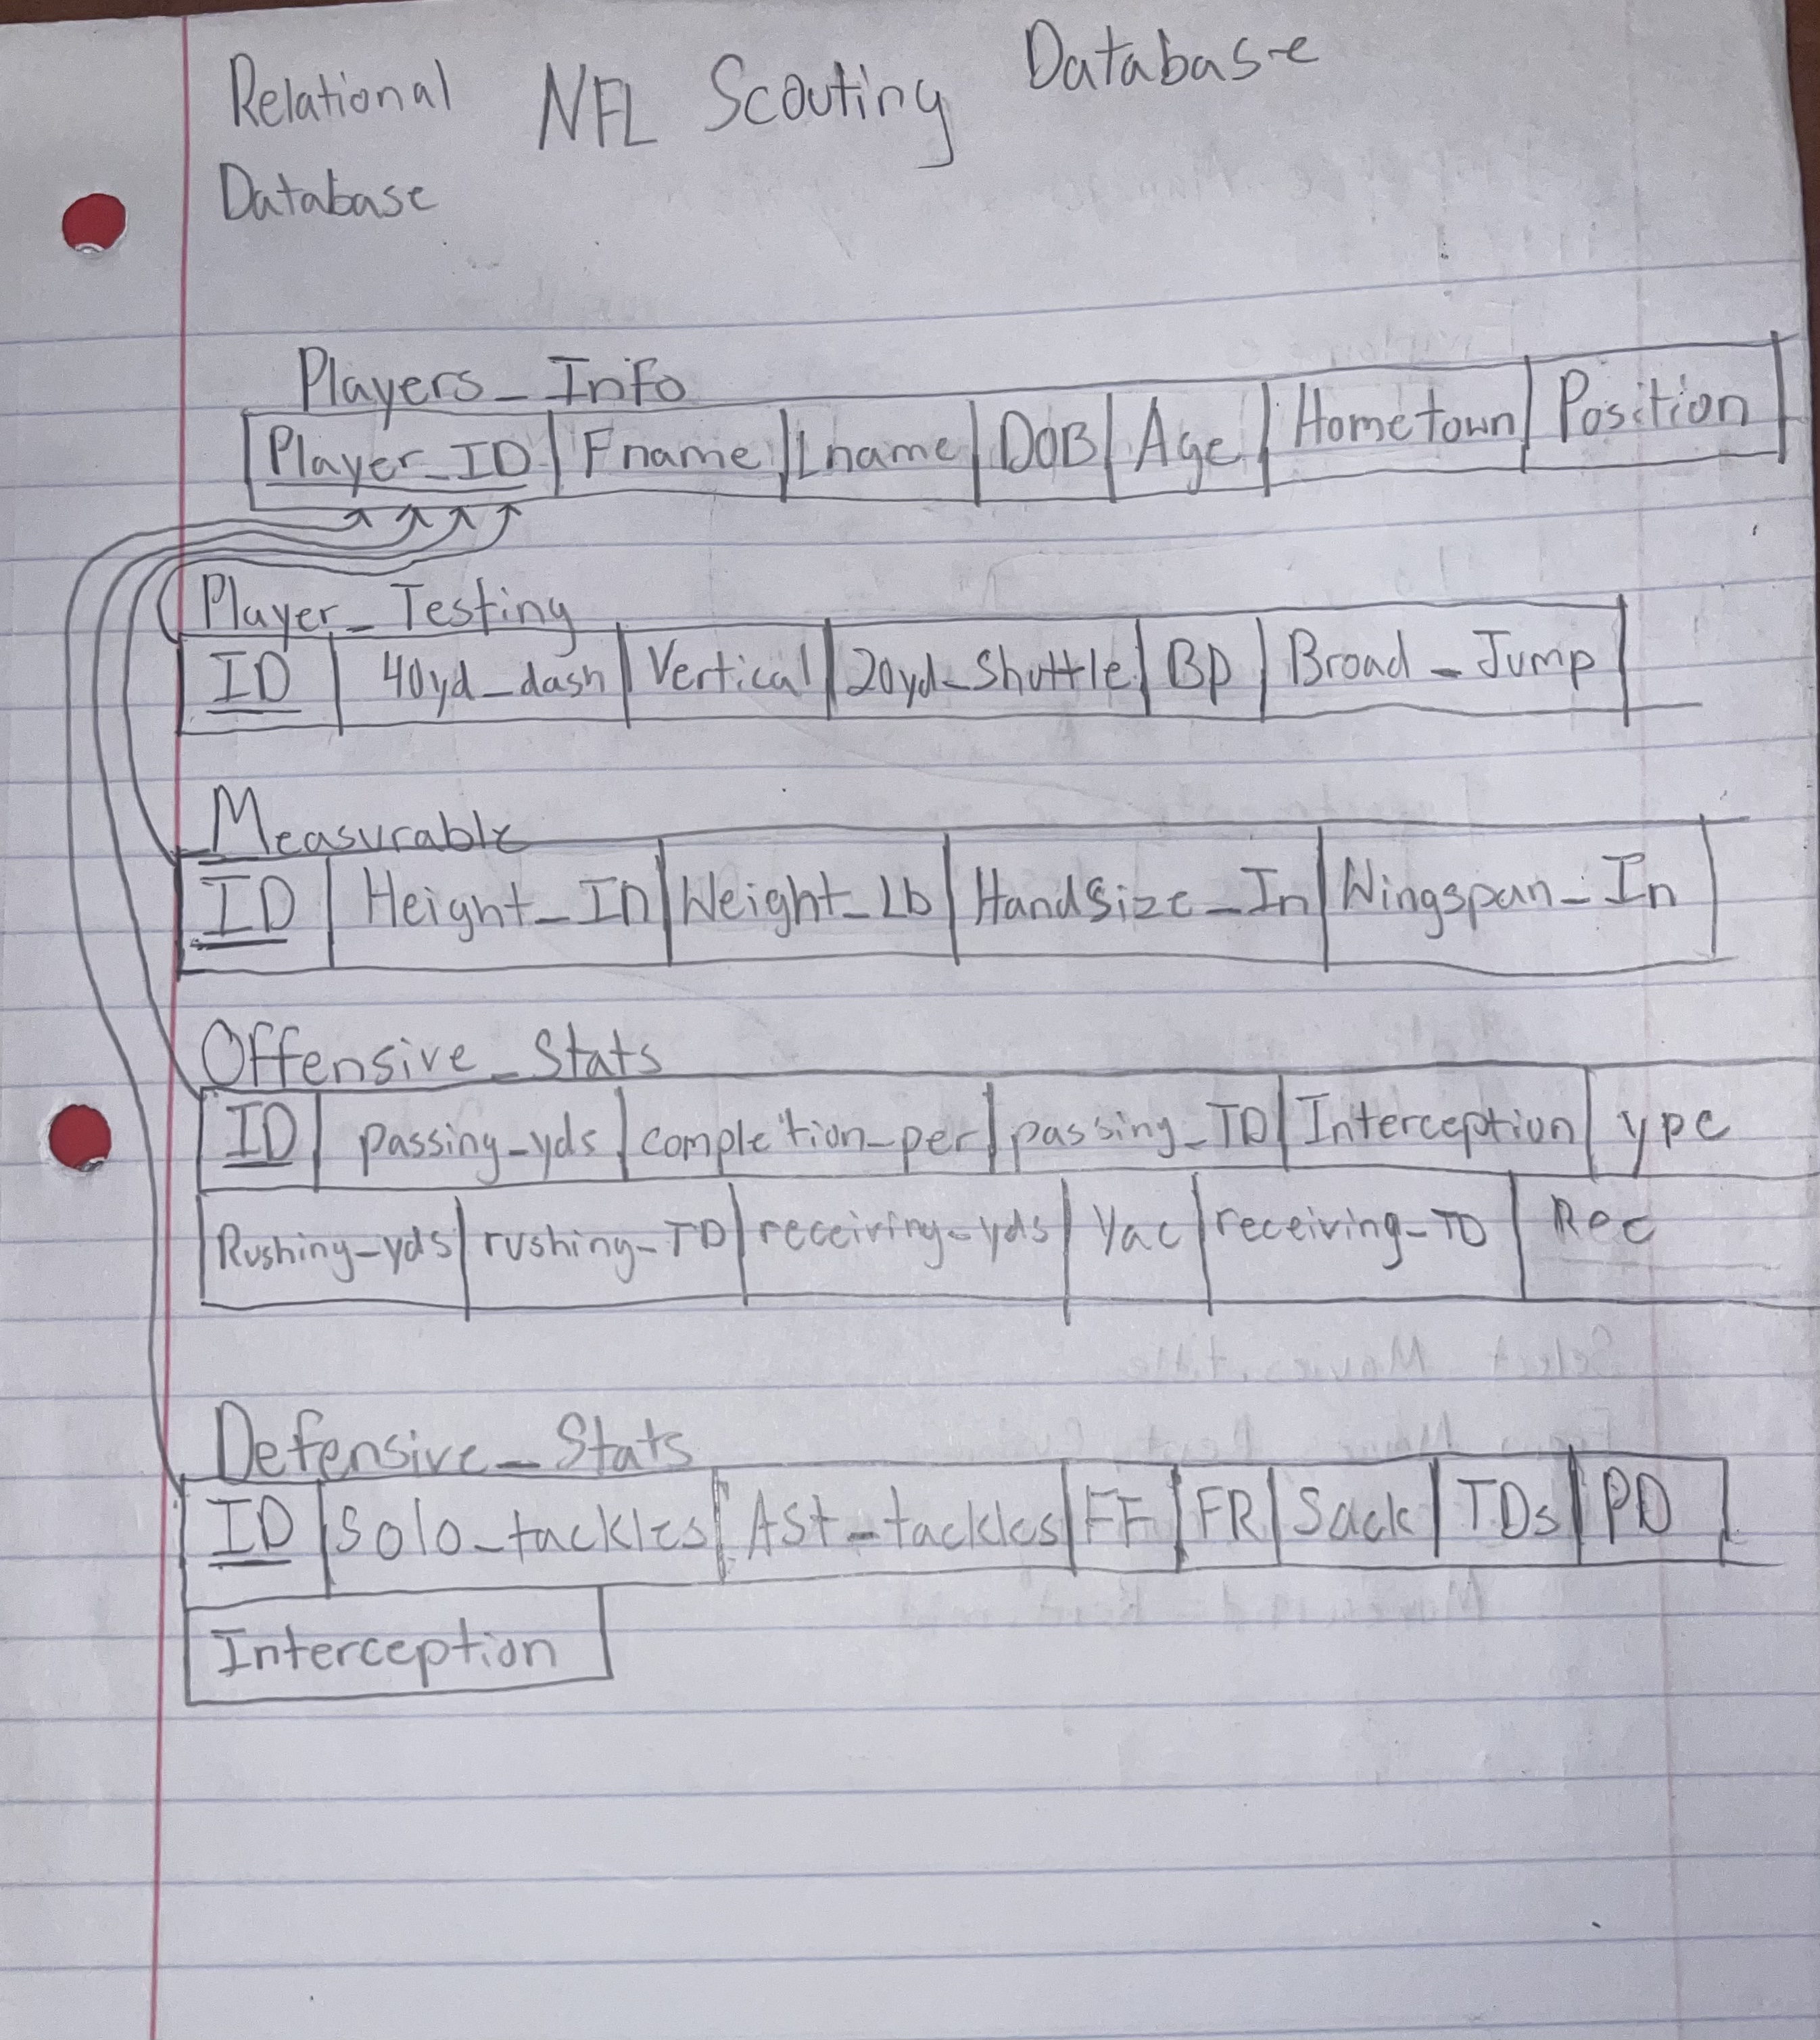 Relational NFL Scouting Database
Database
Players_Info
Player_ID Fname Lname DOB Age Hometown Position
Player_Testing
ID 40yd_dash Vertical 20yd_Shuttle BP Broad_Jump
Measurable
ID Height_In Weight_Lb HandSize_In Wingspan_In
Offensive_Stats
ID passing_yds completion_per passing_TD Interception ypc
Rushing_yds rushing_TD receiving_yds Yac receiving_TD Rec
Defensive_Stats
ID Solo_tackles Ast_tackles FF FR Sack TDs PD
Interception